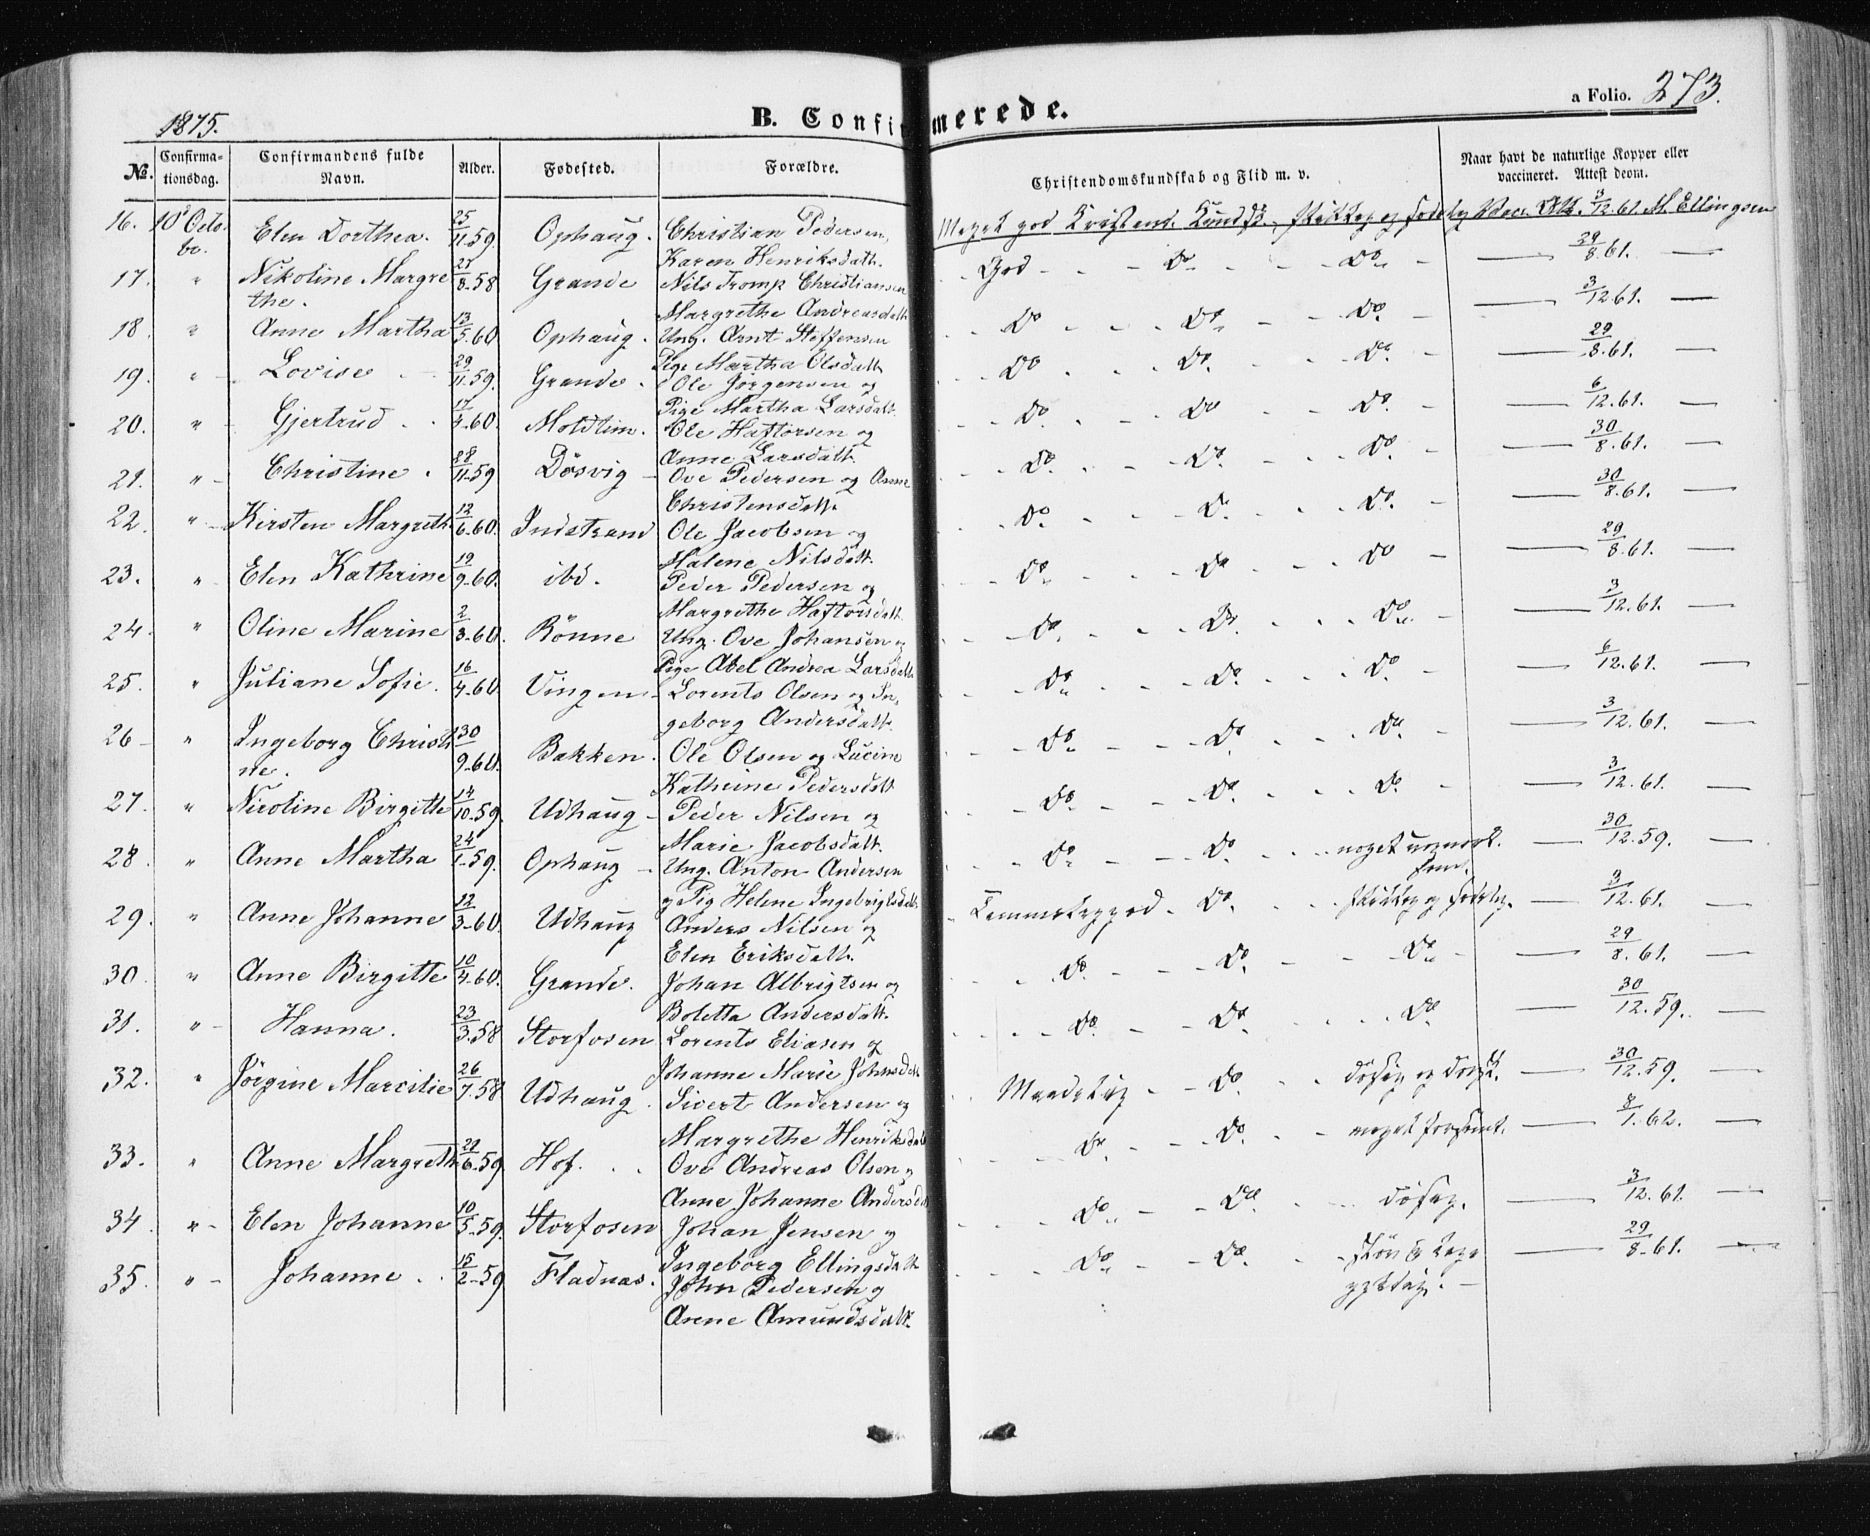 1875.
B. Confirmerede.
a Folio. 273.
No. Confirmationsdag. Confirmandens fulde Navn. Alder. Fødested. Forældre. Christendomskundskab og Flid m. v. Naar havt de naturlige Kopper eller vaccineret. Attest deom.
16. 10de Octobr. Elen Dorthea. 25/11.59. Ophaug. Christian Pedersen, Karen Henriksdatt. Meget god Christend. Kundsk. Vac. Att. 3/12.61. M. Ellingsen
17. " Nikoline Margrethe. 27/8.58 Grande Nils Tromp Christiansen Margrethe Andreasdatt. God Do Do 29/8.61.
18. " Anne Martha 13/5.60 Ophaug. Ung. Arnt Steffensen Pige Martha Olsdatt. Do Do Do 3/12.61.
19. " Lovise 29/11.59. Grande. Ole Jørgensen og Pige Martha Larsdatt. Do Do Do 29/8.61.
20. " Gjertrud 17/4.60. Moldtim. Ole Haftorsen og Anne Larsdatt. Do Do Do 6/12.61.
21. " Christine. 28/11.59 Døsvig Ove Pedersen og Anne Christensdatt. Do Do Do 30/8.61.
22. " Kirsten Margreth. 12/6.60. Indstrand Ole Jacobsen og Halene Nilsdatt. Do Do Do 30/8.61.
23. " Elen Kathrine 19/9.60. ibd. Peder Pedersen og Margrethe Haftorsdatt. Do Do Do 29/8.61.
24. " Oline Marine 2/3.60. Rønne Ung. Ove Johansen og Pige Abel Andrea Larsdatt. Do Do Do 3/12.61.
25. " Juliane Sofie. 16/4.60 Vingen Lorents Olsen og Ingeborg Andersdatt. Do Do Do 6/12.61.
26 " Ingeborg Christine. 30/9.60. Bakken. Ole Olsen og Lucine Kathrine Pedersdatt. Do Do Do 3/12.61.
27. " Nicoline Birgitte 14/10.59. Udhaug Peder Nilsen og Marie Jacobsdatt. Do Do Do 3/12.61.
28. " Anne Martha 24/1.59. Ophaug Ung. Anton Andersen og Pig Helene Ingebrigtsdatt. Do Do noget 30/12.59.
29. " Anne Johanne 12/3.60. Udhaug Anders Nilsen og Elen Eriksdatt. Temmelig god. Do 3/12.61.
30. " Anne Birgitte 10/4.60. Grande. Johan Albrigtsen og Boletta Andersdatt. Do Do Do 29/8.61.
31. " Hanna. 23/3.58 Storfosen Lorents Eliasen og Johanne Marie Johnsdatt Do Do Do 30/12.59.
32. " Jørgine Marcilie 26/7.58 Udhaug. Sivert Andersen og Margrethe Henriksdatt Maadelig Do 30/12.59.
33. " Anne Margreth. 21/6.59 Hof. Ove Andreas Olsen og Anne Johanne Andersdatt Do Do meget 8/1.62.
34. " Elen Johanne 10/5.59. Storfosen Johan Jensen og Ingeborg Ellingsdatt Do Do 3/12.61.
35. " Johanne. 15/2.59 Fladnas. John Pedersen og Anne Amundsdatt. Do Do 29/8.61.